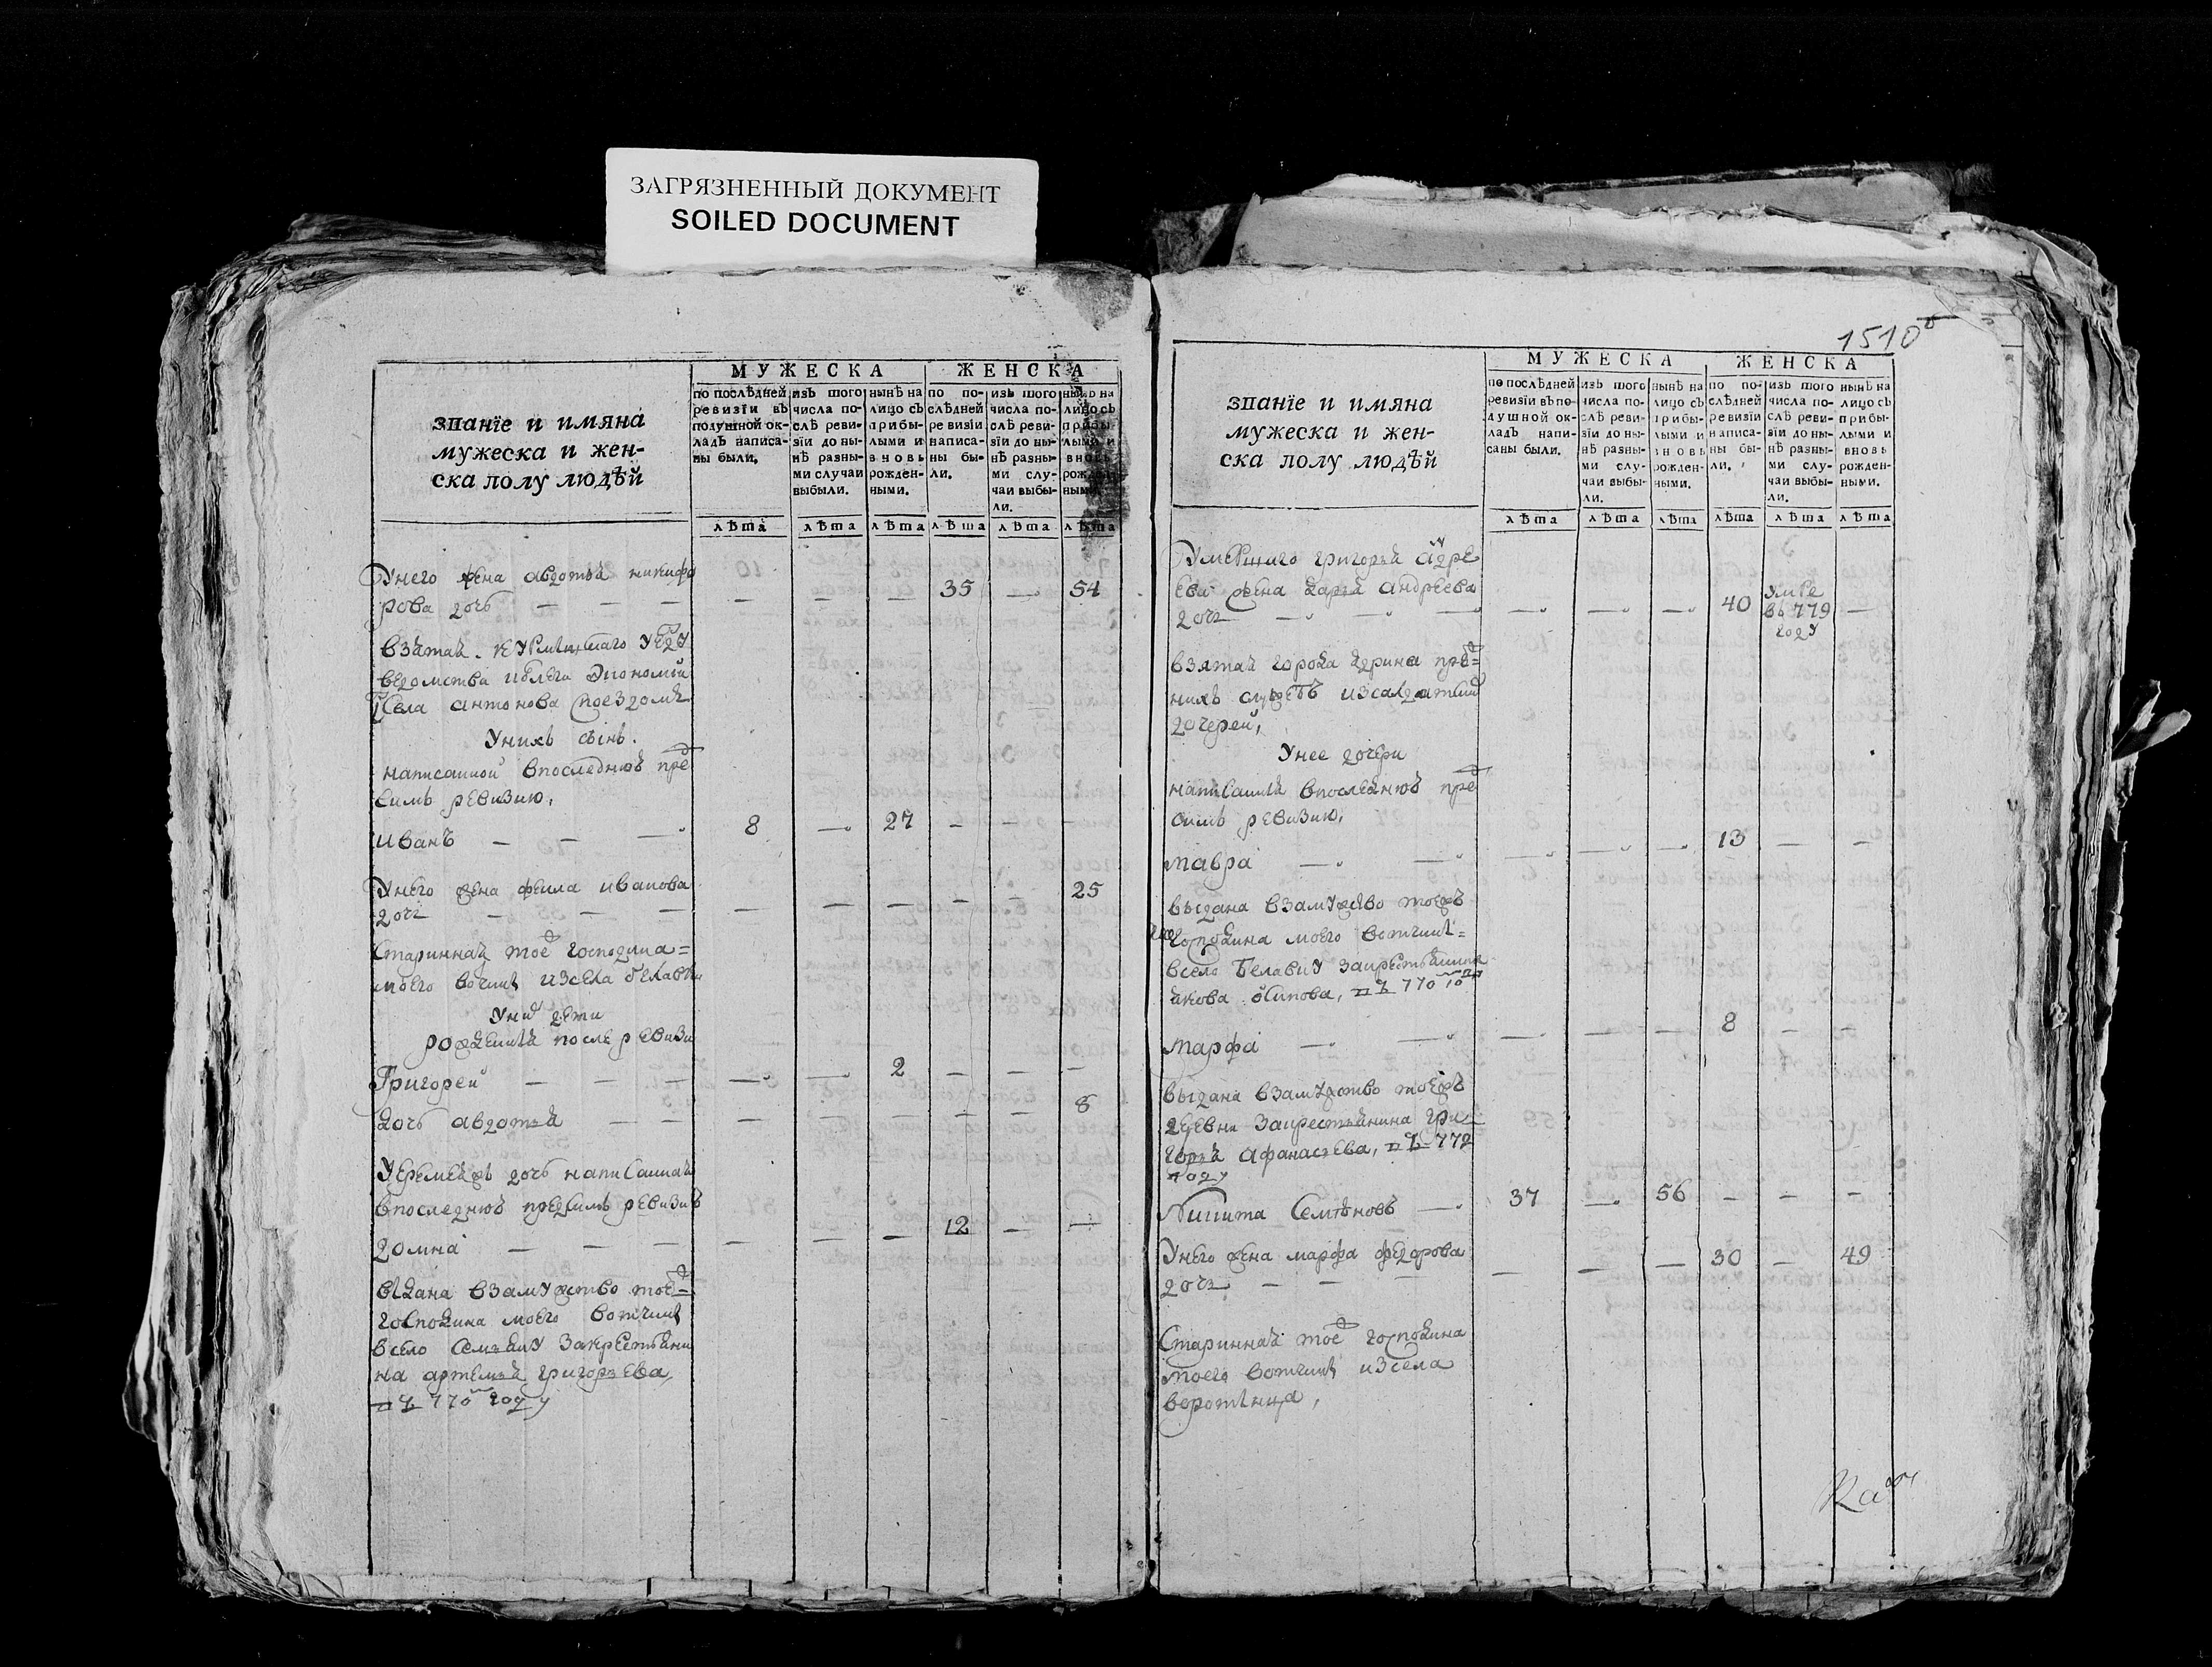 ЗАГРЯЗНЕННЫЙ ДОКУМЕНТ
SOILED DOCUMENT
МУЖЕСКА
ЖЕНСКА
званїе и имяна
мужеска и жен-
ска полу людѣй
по послѣдней
ревизїи въ
подушной ок-
ладъ написа-
ны были.
изъ того
числа по-
слѣ реви-
зїи до ны-
нѣ разны-
ми случаи
выбыли.
нынѣ на
лицо съ
прибы-
лыми и
вновь
рожден-
ными.
по по-
слѣдней
ревизїи
написа-
ны бы-
ли.
изъ того
числа по-
слѣ реви-
зїи до ны-
нѣ разны-
ми слу-
чаи выбы-
ли.
нынѣ на
лицо съ
прибы-
лыми и
вновь
рожден-
ными
лѣта лѣта лѣта лѣта лѣта лѣта
Унего жена авдотья никифо
рова дочь — — — — — — 35 — 54
взятая
ведомства экономии
села антонова
Унихъ сынъ.
написанной впоследнюю пред
симъ ревизию,
иванъ — — — 8 — 27 — — —
Унего жена фекла иванова
дочь — — — — — — — — 25
Старинная тоеж господина=
моего вотчины изсела белавки
Уних дети
рожденныя после ревизи
Григорей — — — — — 2 — — —
дочь авдотья — — — — — — — 8
дочь написанная
впоследнюю предсимъ ревизию
домна — — — — — — 12 — —
выдана взамужство тоеж=
господина моего вотчины
всело закрестьяни
на артемья григорьева,
770 году
1510
МУЖЕСКА
ЖЕНСКА
званїе и имяна
мужеска и жен-
ска полу людѣй
по послѣдней
ревизїи въ по-
душной ок-
ладъ напи-
саны были.
изъ того
числа по-
слѣ реви-
зїи до ны-
нѣ разны-
ми слу-
чаи выбы-
ли.
нынѣ на
лицо съ
прибы-
лыми и
вновь
рожден-
ными.
по по-
слѣдней
ревизїи
написа-
ны бы-
ли.
изъ того
числа по-
слѣ реви-
зїи до ны-
нѣ разны-
ми слу-
чаи выбы-
ли.
нынѣ на
лицо съ
прибы-
лыми и
вновь
рожден-
ными.
лѣта лѣта лѣта лѣта лѣта лѣта
Умершего григорья андре
ева жена дарья андреева
дочь — — — — — — 40 умре въ 779 году —
взятая города
нихъ службъ
дочерей,
Унее дочери
написанныя впоследнюю пред
симъ ревизию,
мавра — — — — — 13 — —
выдана взамужство тоежъ
господина моего вотчины=
всело белавку закрестьянина
якова осипова, 770 году
марфа — — — — — 8 — —
выдана взамужство тоежъ
деревни закрестьянина гри
горья афанасьева, 772
году
Никита Семеновъ — 37 — 56 — — —
Унего жена марфа федорова
дочь — — — — — — 30 — 49
Старинная тоеж господина
моего вотчины изсела
воротынца,